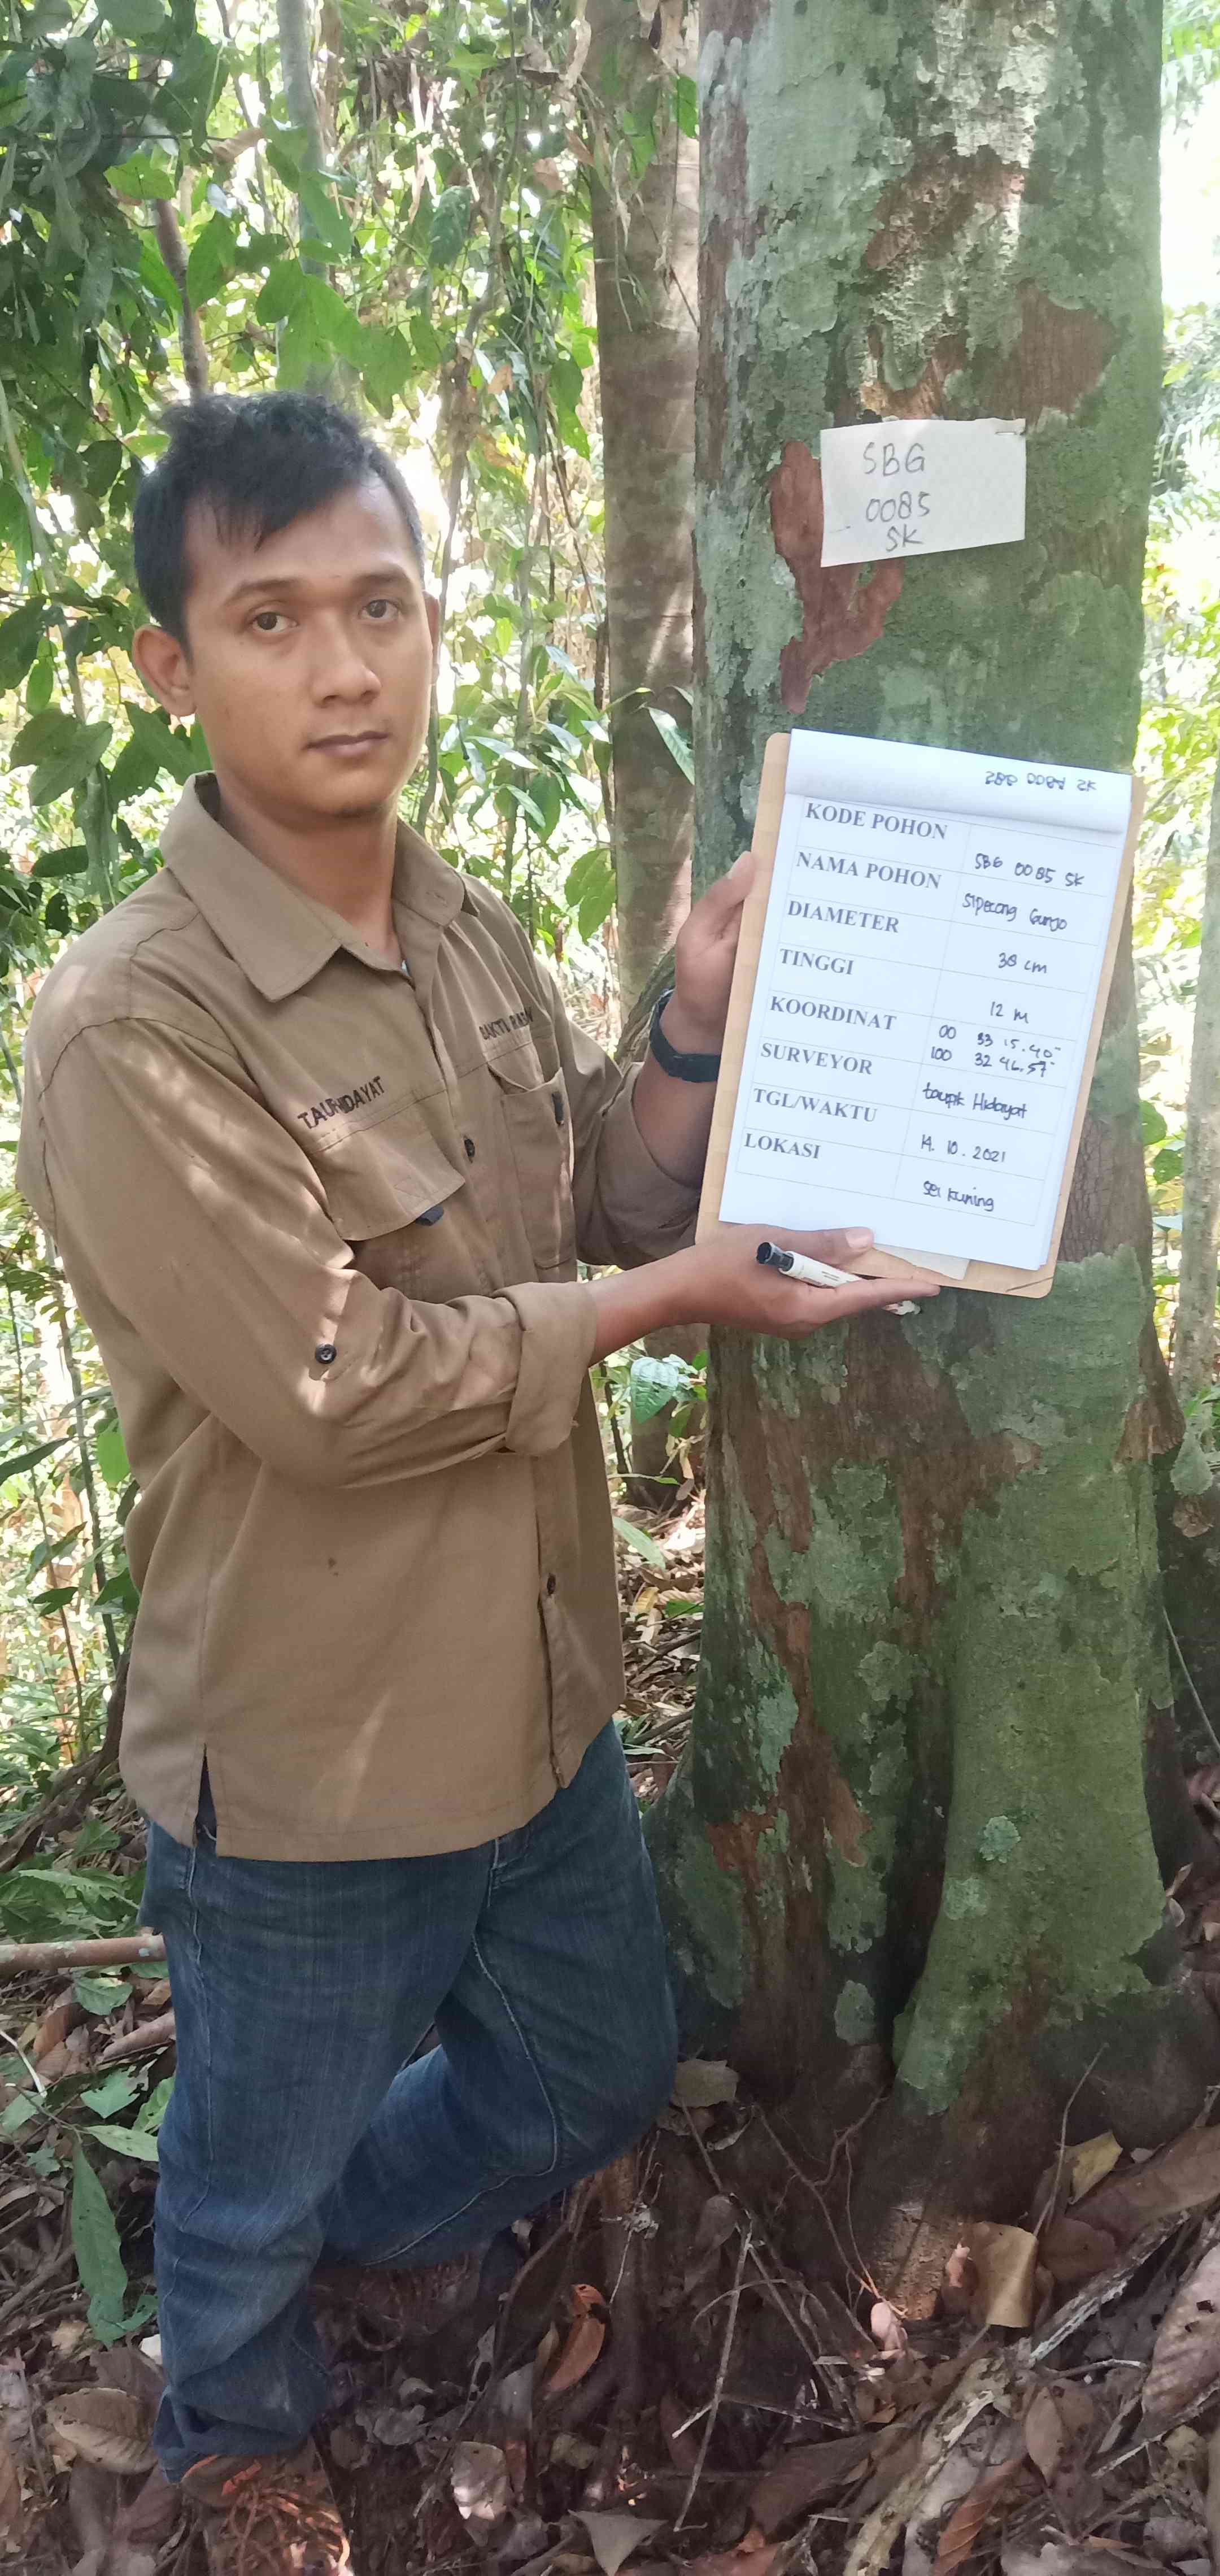 SBG
0085
SK
KODE POHON SBG 0085 SK
NAMA POHON Sipecong Gungo
DIAMETER 38 cm
TINGGI 12 M
KOORDINAT 00 33 15.40"
100 32 46.57"
SURVEYOR taupik Hidayat
TGL/WAKTU 14. 10. 2021
LOKASI sei kuning
HIDAYAT
BAKTI